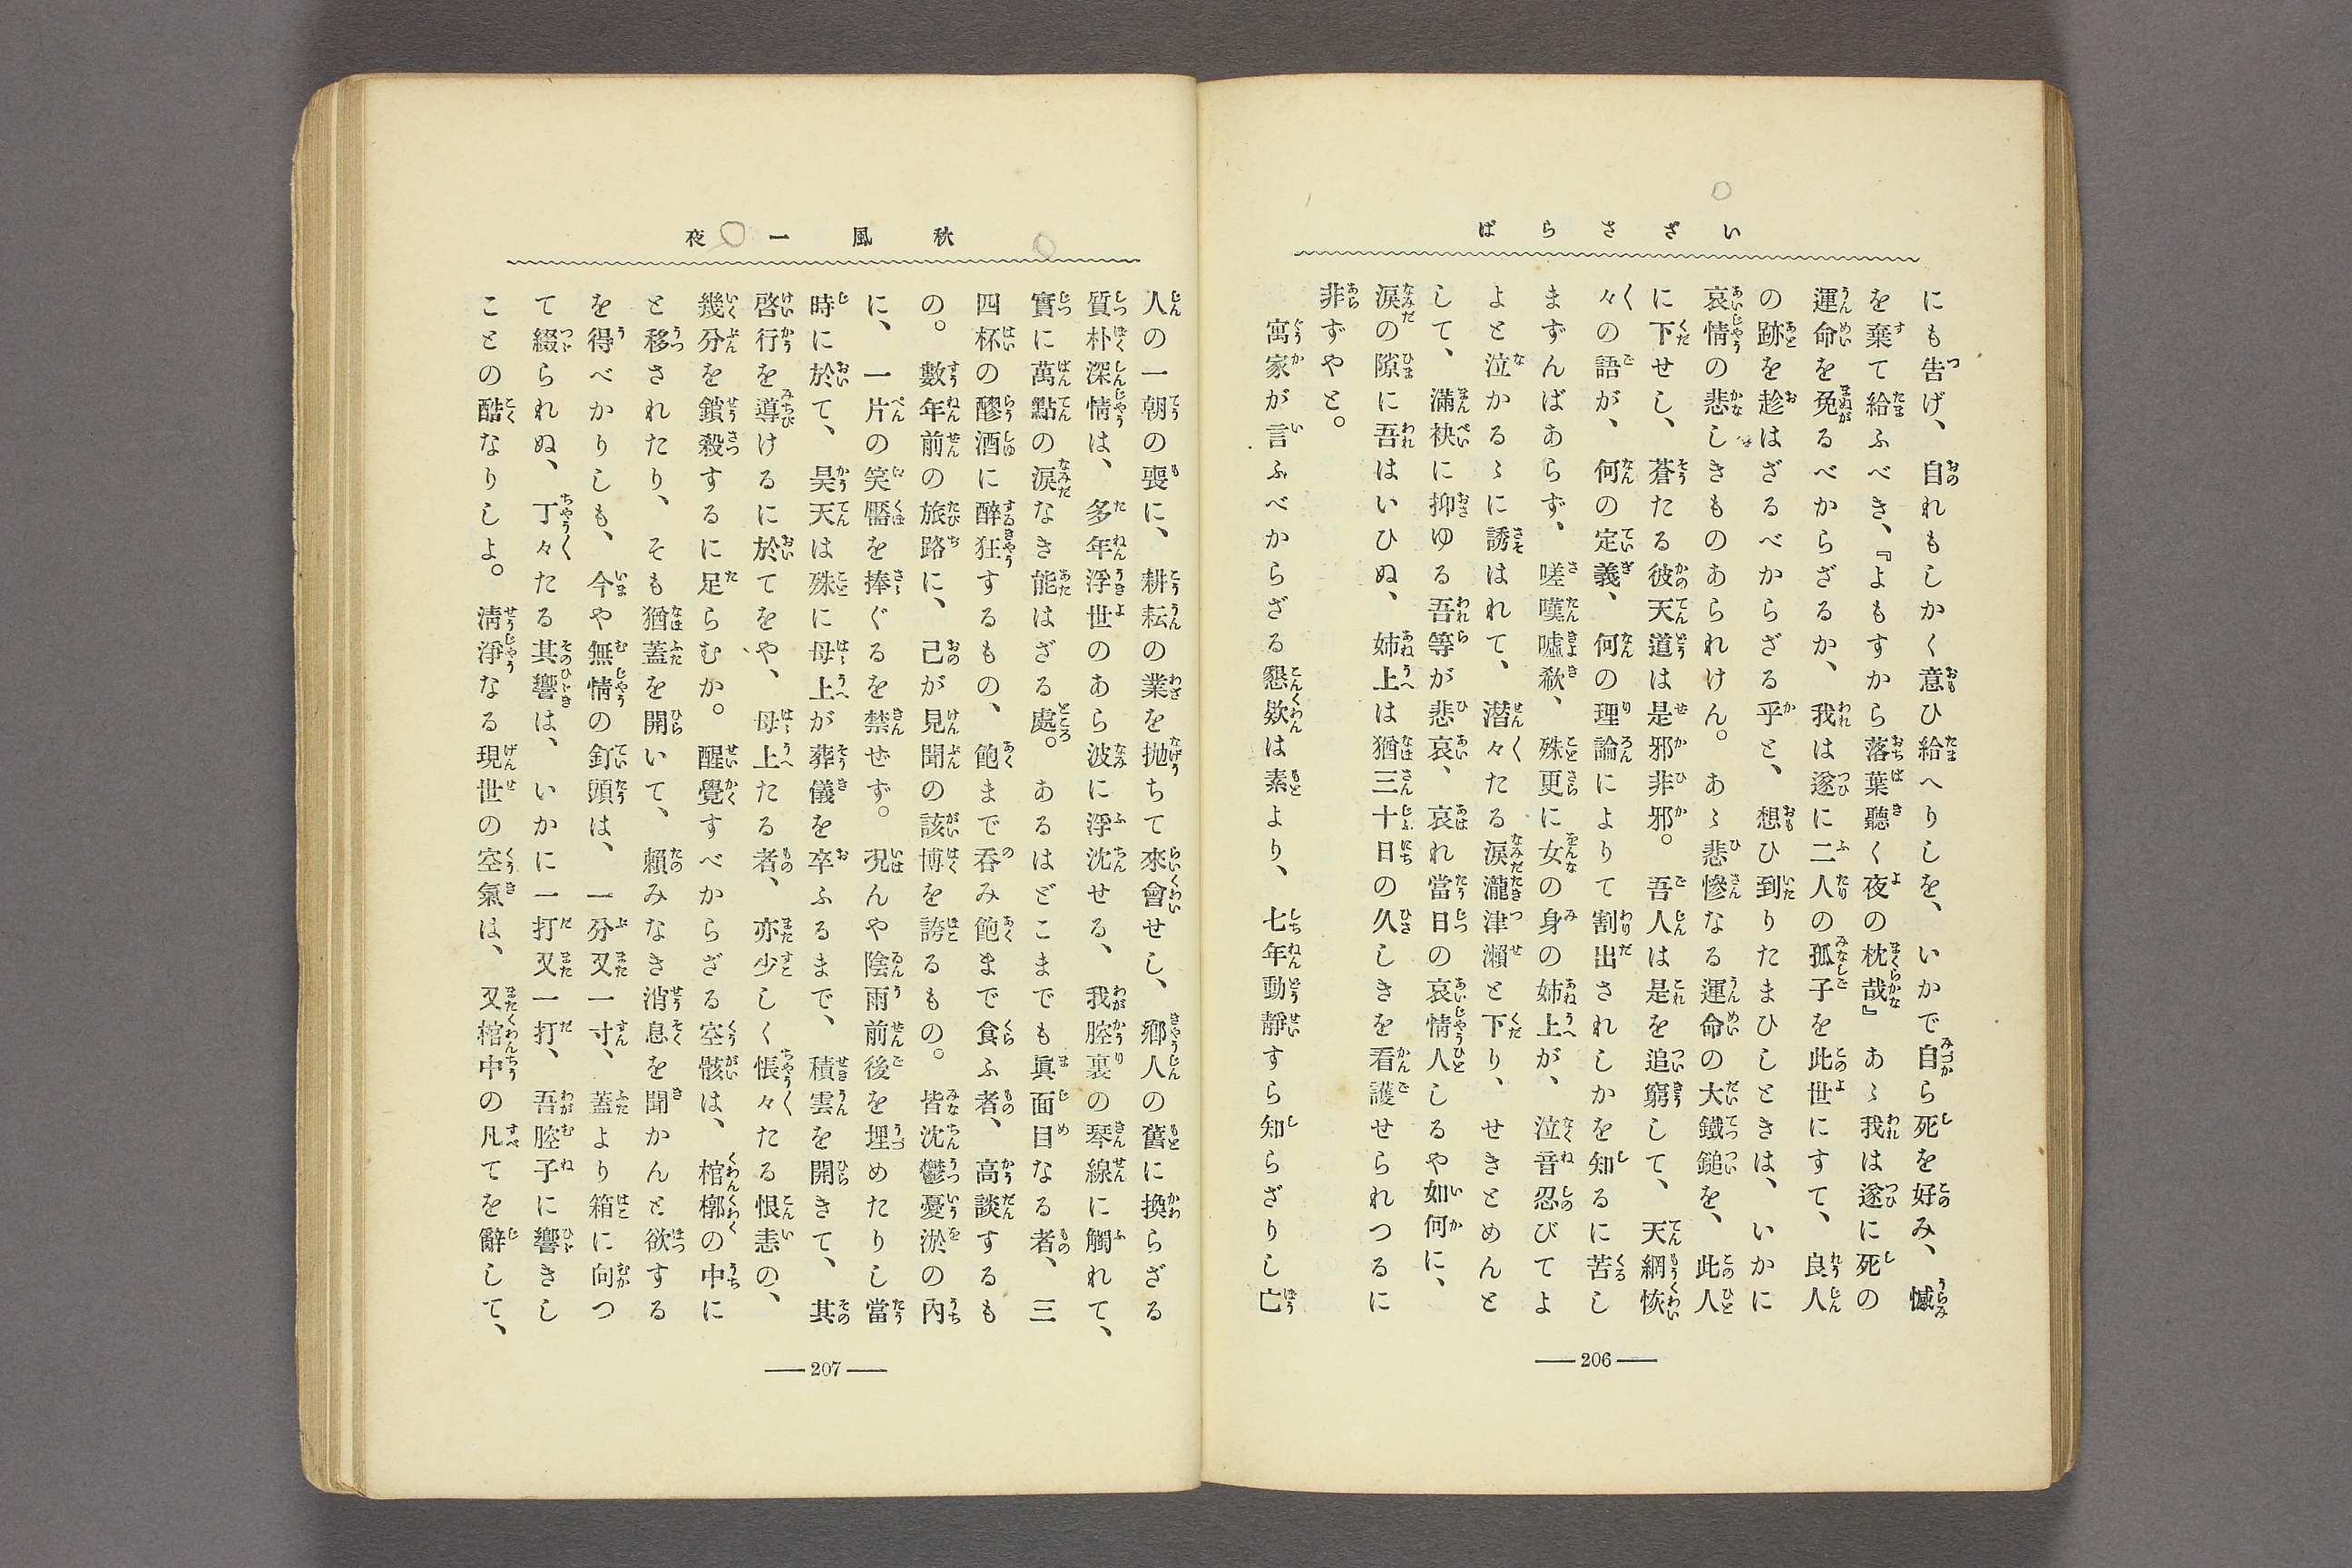 いざさらば
にも告げ、自れもしかく意ひ給へりしを、いかで自ら死を好み、憾
を棄て給ふべき、『よもすから落葉聽く夜の枕哉』あゝ我は遂に死の
運命を免るべからざるか、我は遂に二人の孤子を此世にすて、良人
の跡を趁はざるべからざる乎と、想ひ到りたまひしときは、いかに
哀情の悲しきものあられけん。あゝ悲慘なる運命の大鐵鎚を、此人
に下せし、蒼たる彼天道は是邪非邪。吾人は是を追窮して、天網恢
々の語が、何の定義、何の理論によりて割出されしかを知るに苦し
まずんばあらず、嗟嘆噓欷、殊更に女の身の姉上が、泣音忍びてよ
よと泣かるゝに誘はれて、潜々たる涙瀧津瀨と下り、せきとめんと
して、滿袂に抑ゆる吾等が悲哀、哀れ當日の哀情人しるや如何に、
涙の隙に吾はいひぬ、姉上は猶三十日の久しきを看護せられつるに
非ずやと。
寓家が言ふべからざる懇欵は素より、七年動靜すら知らざりし亡
206
秋風一夜
人の一朝の喪に、耕耘の業を抛ちて來會せし、鄕人の舊に換らざる
質朴深情は、多年浮世のあら波に浮沈せる、我腔裏の琴線に觸れて、
實に萬點の涙なき能はざる處。あるはどこまでも眞面目なる者、三
四杯の醪酒に醉狂するもの、飽まで呑み飽まで食ふ者、高談するも
の。數年前の旅路に、己が見聞の該博を誇るもの。皆沈鬱憂淤の內
に、一片の笑靨を捧ぐるを禁ぜず。况んや陰雨前後を埋めたりし當
時に於て、昊天は殊に母上が葬儀を卒ふるまで、積雲を開きて、其
啓行を導けるに於てをや、母上たる者、亦少しく悵々たる恨恚の、
幾分を鎖殺するに足らむか。醒覺すべからざる空骸は、棺槨の中に
と移されたり、そも猶蓋を開いて、賴みなき消息を聞かんと欲する
を得べかりしも、今や無情の釘頭は、一分又一寸、蓋より箱に向つ
て綴られぬ、丁々たる其響は、いかに一打又一打、吾腔子に響きし
ことの酷なりしよ。淸淨なる現世の空氣は、又棺中の凡てを辭して、
207